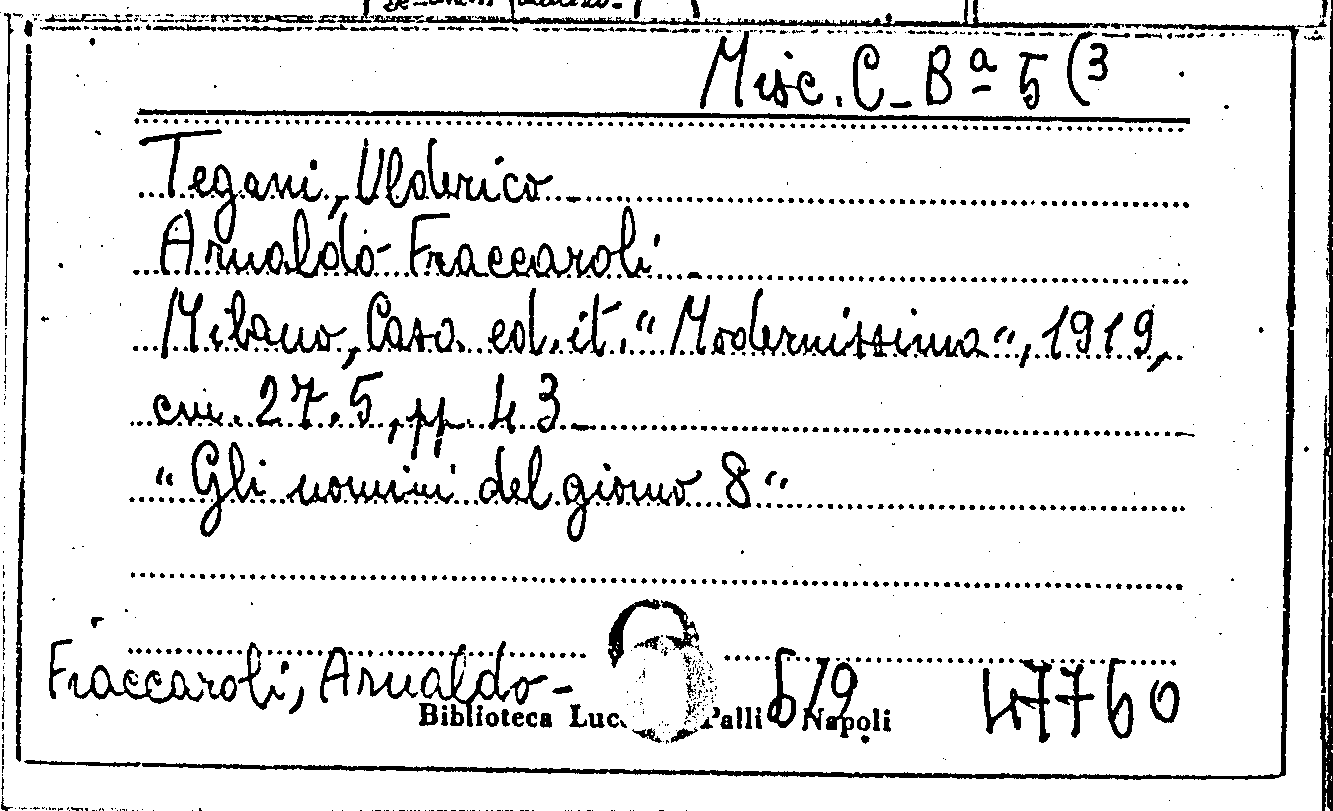 Misc. C_Bª 5 (3
Tegani, Ulderico
Arnaldo Fraccaroli
Milano, Casa ed. it. "Modernissima", 1919,
cm. 27.5, pp. 43
"Gli uomini del giorno 8"
Fraccaroli, Arnaldo -
Biblioteca Palli Napoli
47760